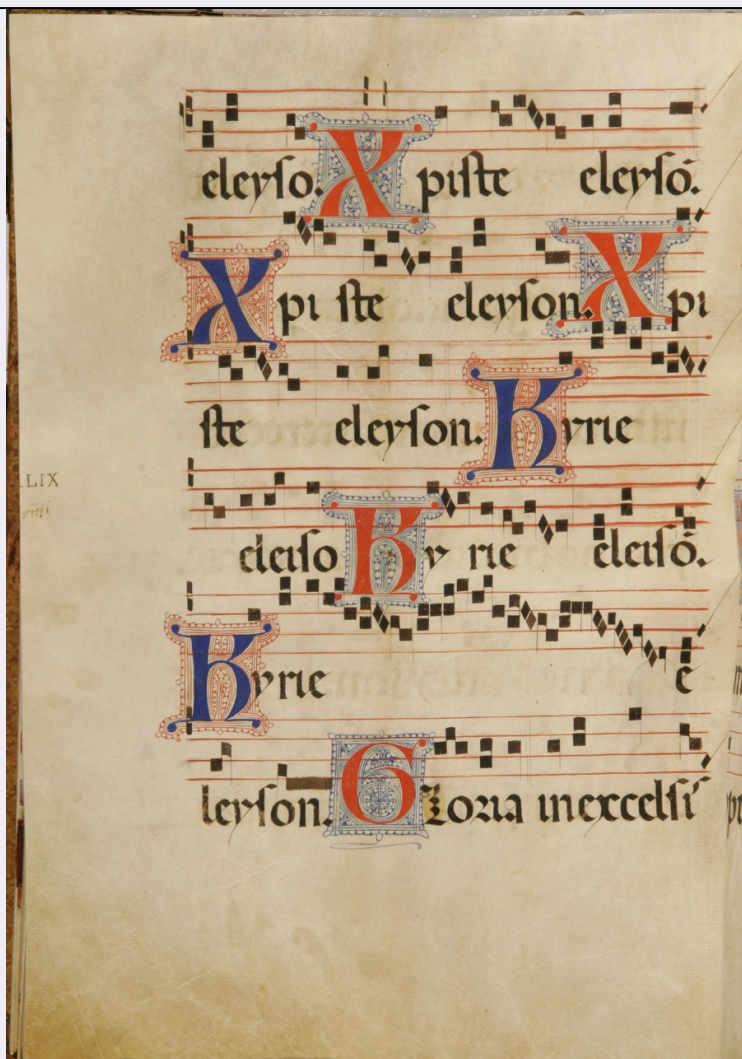 eleyſo. Xpiſte eleyſō.
Xpi ſte eleyſon. Xpi
ſte eleyſon. Kyrie
LIX
eleiſo Ky rie eleiſō.
Kyrie e
leyſon. Gloria in excelſi